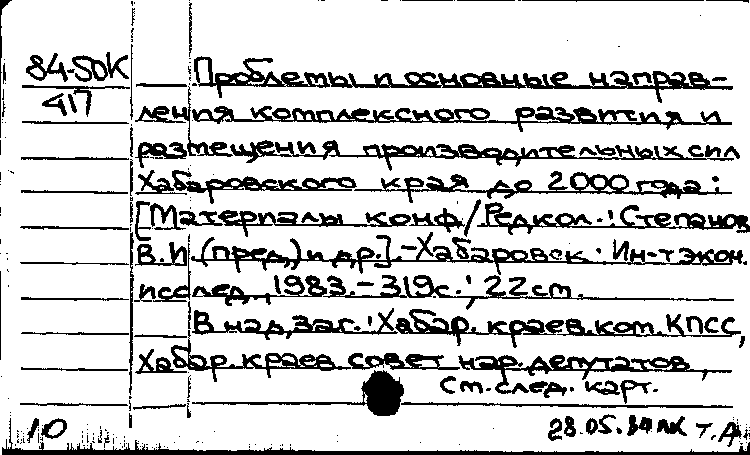 84-50К
417
Проблемы и основные направ-
ления комплексного развития и
размещения производительных сил
Хабаровского края до 2000 года:
[Материалы конф./Редкол.: Степанов
В.И. (пред.) и др.].-Хабаровск: Ин-т экон.
исслед., 1983.-319с.; 22см.
В надзаг.: Хабар. краев. ком. КПСС,
Хабар. краев. совет нар. депутатов,
См. след. карт.
10
28.05.84 Т.А